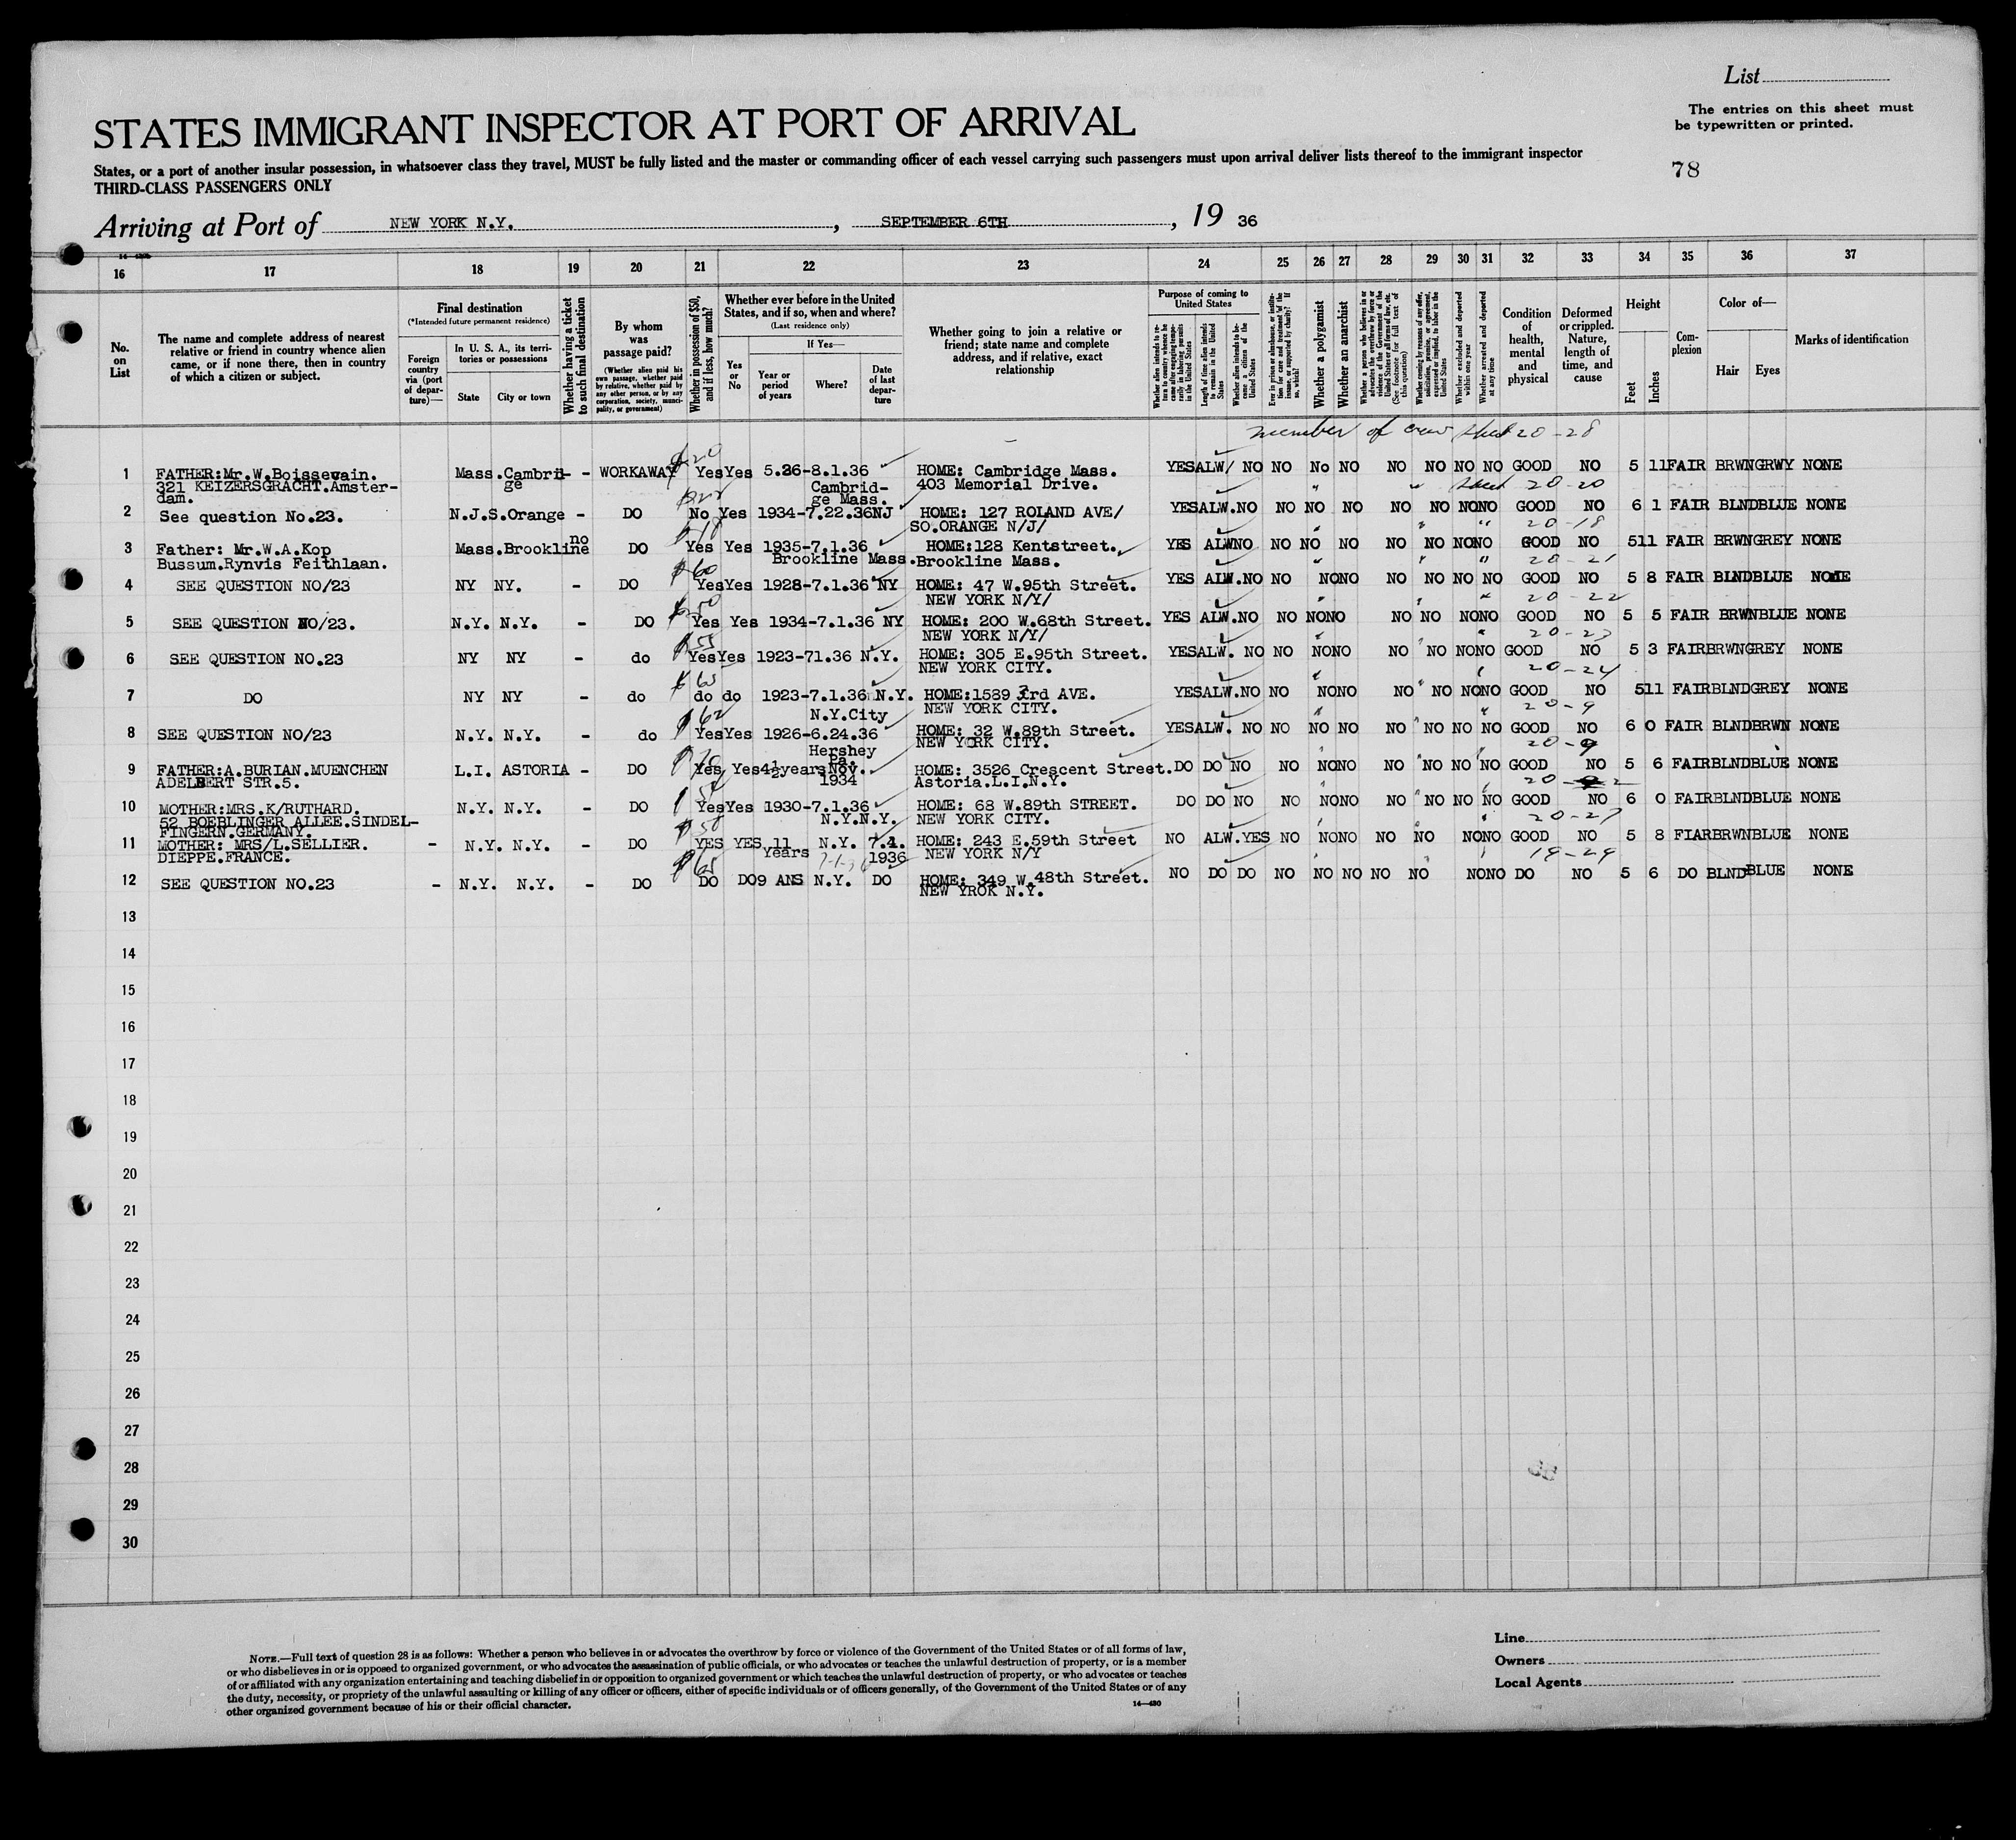 List
The entries on this sheet must
be typewritten or printed.
STATES IMMIGRANT INSPECTOR AT PORT OF ARRIVAL
States, or a port of another insular possession, in whatsoever class they travel, MUST be fully listed and the master or commanding officer of each vessel carrying such passengers must upon arrival deliver lists thereof to the immigrant inspector
THIRD-CLASS PASSENGERS ONLY
78
Arriving at Port of NEW YORK N.Y. , SEPTEMBER 6TH , 19 36
16 17 18 19 20 21 22 23 24 25 26 27 28 29 30 31 32 33 34 35 36 37
No. on List
The name and complete address of nearest relative or friend in country whence alien came, or if none there, then in country of which a citizen or subject.
Final destination
(*Intended future permanent residence)
Foreign country via (port of departure)—
In U. S. A., its territories or possessions
State City or town
Whether having a ticket to such final destination
By whom was passage paid?
(Whether alien paid his own passage, whether paid by relative, whether paid by any other person, or by any corporation, society, municipality, or government)
Whether in possession of $50, and if less, how much?
Whether ever before in the United States, and if so, when and where?
(Last residence only)
If Yes—
Yes or No
Year or period of years
Where?
Date of last departure
Whether going to join a relative or friend; state name and complete address, and if relative, exact relationship
Purpose of coming to United States
Whether alien intends to return to country whence he came after engaging temporarily in laboring pursuits in the United States
Length of time alien intends to remain in the United States
Whether alien intends to become a citizen of the United States
Ever in prison or almshouse, or institution for care and treatment of the insane, or supported by charity? If so, which?
Whether a polygamist
Whether an anarchist
Whether a person who believes in or advocates the overthrow by force or violence of the Government of the United States or all forms of law, etc. (See footnote for full text of this question)
Whether coming by reasons of any offer, solicitation, promise, or agreement, expressed or implied, to labor in the United States
Whether excluded and deported within one year
Whether arrested and deported at any time
Condition of health, mental and physical
Deformed or crippled. Nature, length of time, and cause
Height
Feet Inches
Complexion
Color of—
Hair Eyes
Marks of identification
member of crew sheet 20-28
1 FATHER:Mr.W.Boissevain. Mass.Cambri- - WORKAWAY $20 YesYes 5.26-8.1.36 HOME: Cambridge Mass. YESALW/ NO NO No NO NO NO NO NO GOOD NO 5 11FAIR BRWNGRWY NONE
321 KEIZERSGRACHT.Amster- ge Cambrid- 403 Memorial Drive. sheet 20-20
dam. ge Mass.
2 See question No.23. N.J.S.Orange - DO No Yes 1934-7.22.36NJ HOME: 127 ROLAND AVE/ YESALW.NO NO NO NO NO NO NONO GOOD NO 6 1 FAIR BLNDBLUE NONE
SO.ORANGE N/J/ 20-18
3 Father: Mr.W.A.Kop Mass.Brookline no DO Yes Yes 1935-7.1.36 HOME:128 Kentstreet. YES ALWNO NO NO NO NO NO NONO GOOD NO 511 FAIR BRWNGREY NONE
Bussum.Rynvis Feithlaan. Brookline Mass.Brookline Mass. 20-21
4 SEE QUESTION NO/23 NY NY. - DO $60 YesYes 1928-7.1.36 NY HOME: 47 W.95th Street. YES ALW.NO NO NONO NO NO NO NO GOOD NO 5 8 FAIR BLNDBLUE NONE
NEW YORK N/Y/ 20-22
5 SEE QUESTION NO/23. N.Y. N.Y. - DO Yes Yes 1934-7.1.36 NY HOME: 200 W.68th Street. YES ALW.NO NO NONO NO NO NONO GOOD NO 5 5 FAIR BRWNBLUE NONE
NEW YORK N/Y/ 20-23
6 SEE QUESTION NO.23 NY NY - do $55 YesYes 1923-71.36 N.Y. HOME: 305 E.95th Street. YESALW. NO NO NONO NO NO NONO GOOD NO 5 3 FAIRBRWNGREY NONE
NEW YORK CITY. 20-24
7 DO NY NY - do $65 do do 1923-7.1.36 N.Y. HOME:1589 3rd AVE. YESALW.NO NO NONO NO NO NONO GOOD NO 511 FAIRBLNDGREY NONE
N.Y.City NEW YORK CITY. 20-9
8 SEE QUESTION NO/23 N.Y. N.Y. - do $62 YesYes 1926-6.24.36 HOME: 32 W.89th Street. YESALW. NO NO NO NO NO NO NO NO GOOD NO 6 0 FAIR BLNDBRWN NONE
Hershey NEW YORK CITY. 20-9
Pa.
9 FATHER:A.BURIAN.MUENCHEN L.I. ASTORIA - DO $70 Yes Yes4½years Nov. HOME: 3526 Crescent Street.DO DO NO NO NONO NO NO NO NO GOOD NO 5 6 FAIRBLNDBLUE NONE
ADELBERT STR.5. 1934 Astoria.L.I.N.Y.
10 MOTHER:MRS.K/RUTHARD. N.Y. N.Y. - DO YesYes 1930-7.1.36 HOME: 68 W.89th STREET. DO DO NO NO NONO NO NO NO NO GOOD NO 6 0 FAIRBLNDBLUE NONE
52 BOEBLINGER ALLEE.SINDEL- N.Y.N.Y. NEW YORK CITY. 20-27
FINGERN.GERMANY.
11 MOTHER: MRS/L.SELLIER. - N.Y. N.Y. - DO $50 YES YES 11 N.Y. 7.1. HOME: 243 E.59th Street NO ALW.YES NO NONO NO NO NONO GOOD NO 5 8 FIARBRWNBLUE NONE
DIEPPE.FRANCE. Years 7-1-36 1936 NEW YORK N/Y 19-29
12 SEE QUESTION NO.23 - N.Y. N.Y. - DO $65 DO DO9 ANS N.Y. DO HOME: 349 W.48th Street. NO DO DO NO NO NO NO NO NONO DO NO 5 6 DO BLNDBLUE NONE
NEW YROK N.Y.
13
14
15
16
17
18
19
20
21
22
23
24
25
26
27
28
29
30
NOTE.—Full text of question 28 is as follows: Whether a person who believes in or advocates the overthrow by force or violence of the Government of the United States or of all forms of law,
or who disbelieves in or is opposed to organized government, or who advocates the assassination of public officials, or who advocates or teaches the unlawful destruction of property, or is a member
of or affiliated with any organization entertaining and teaching disbelief in or opposition to organized government or which teaches the unlawful destruction of property, or who advocates or teaches
the duty, necessity, or propriety of the unlawful assaulting or killing of any officer or officers, either of specific individuals or of officers generally, of the Government of the United States or of any
other organized government because of his or their official character.
14—480
Line
Owners
Local Agents